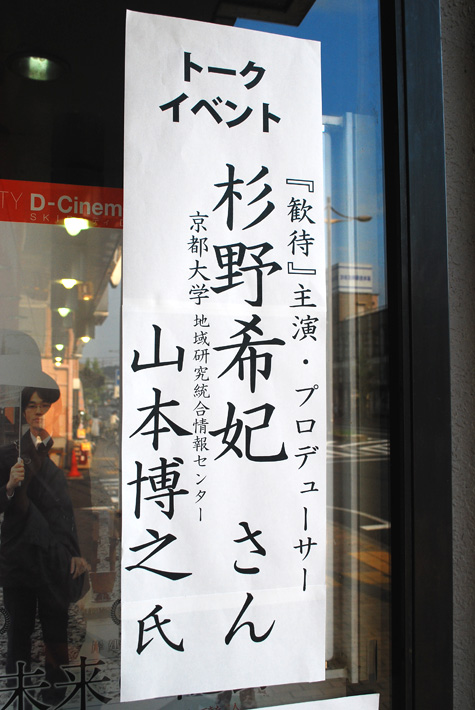 トーク
イベント
『歓待』主演・プロデューサー
杉野希妃 さん
京都大学 地域研究統合情報センター
山本博之 氏
TY D-Cinem
SKI
未来